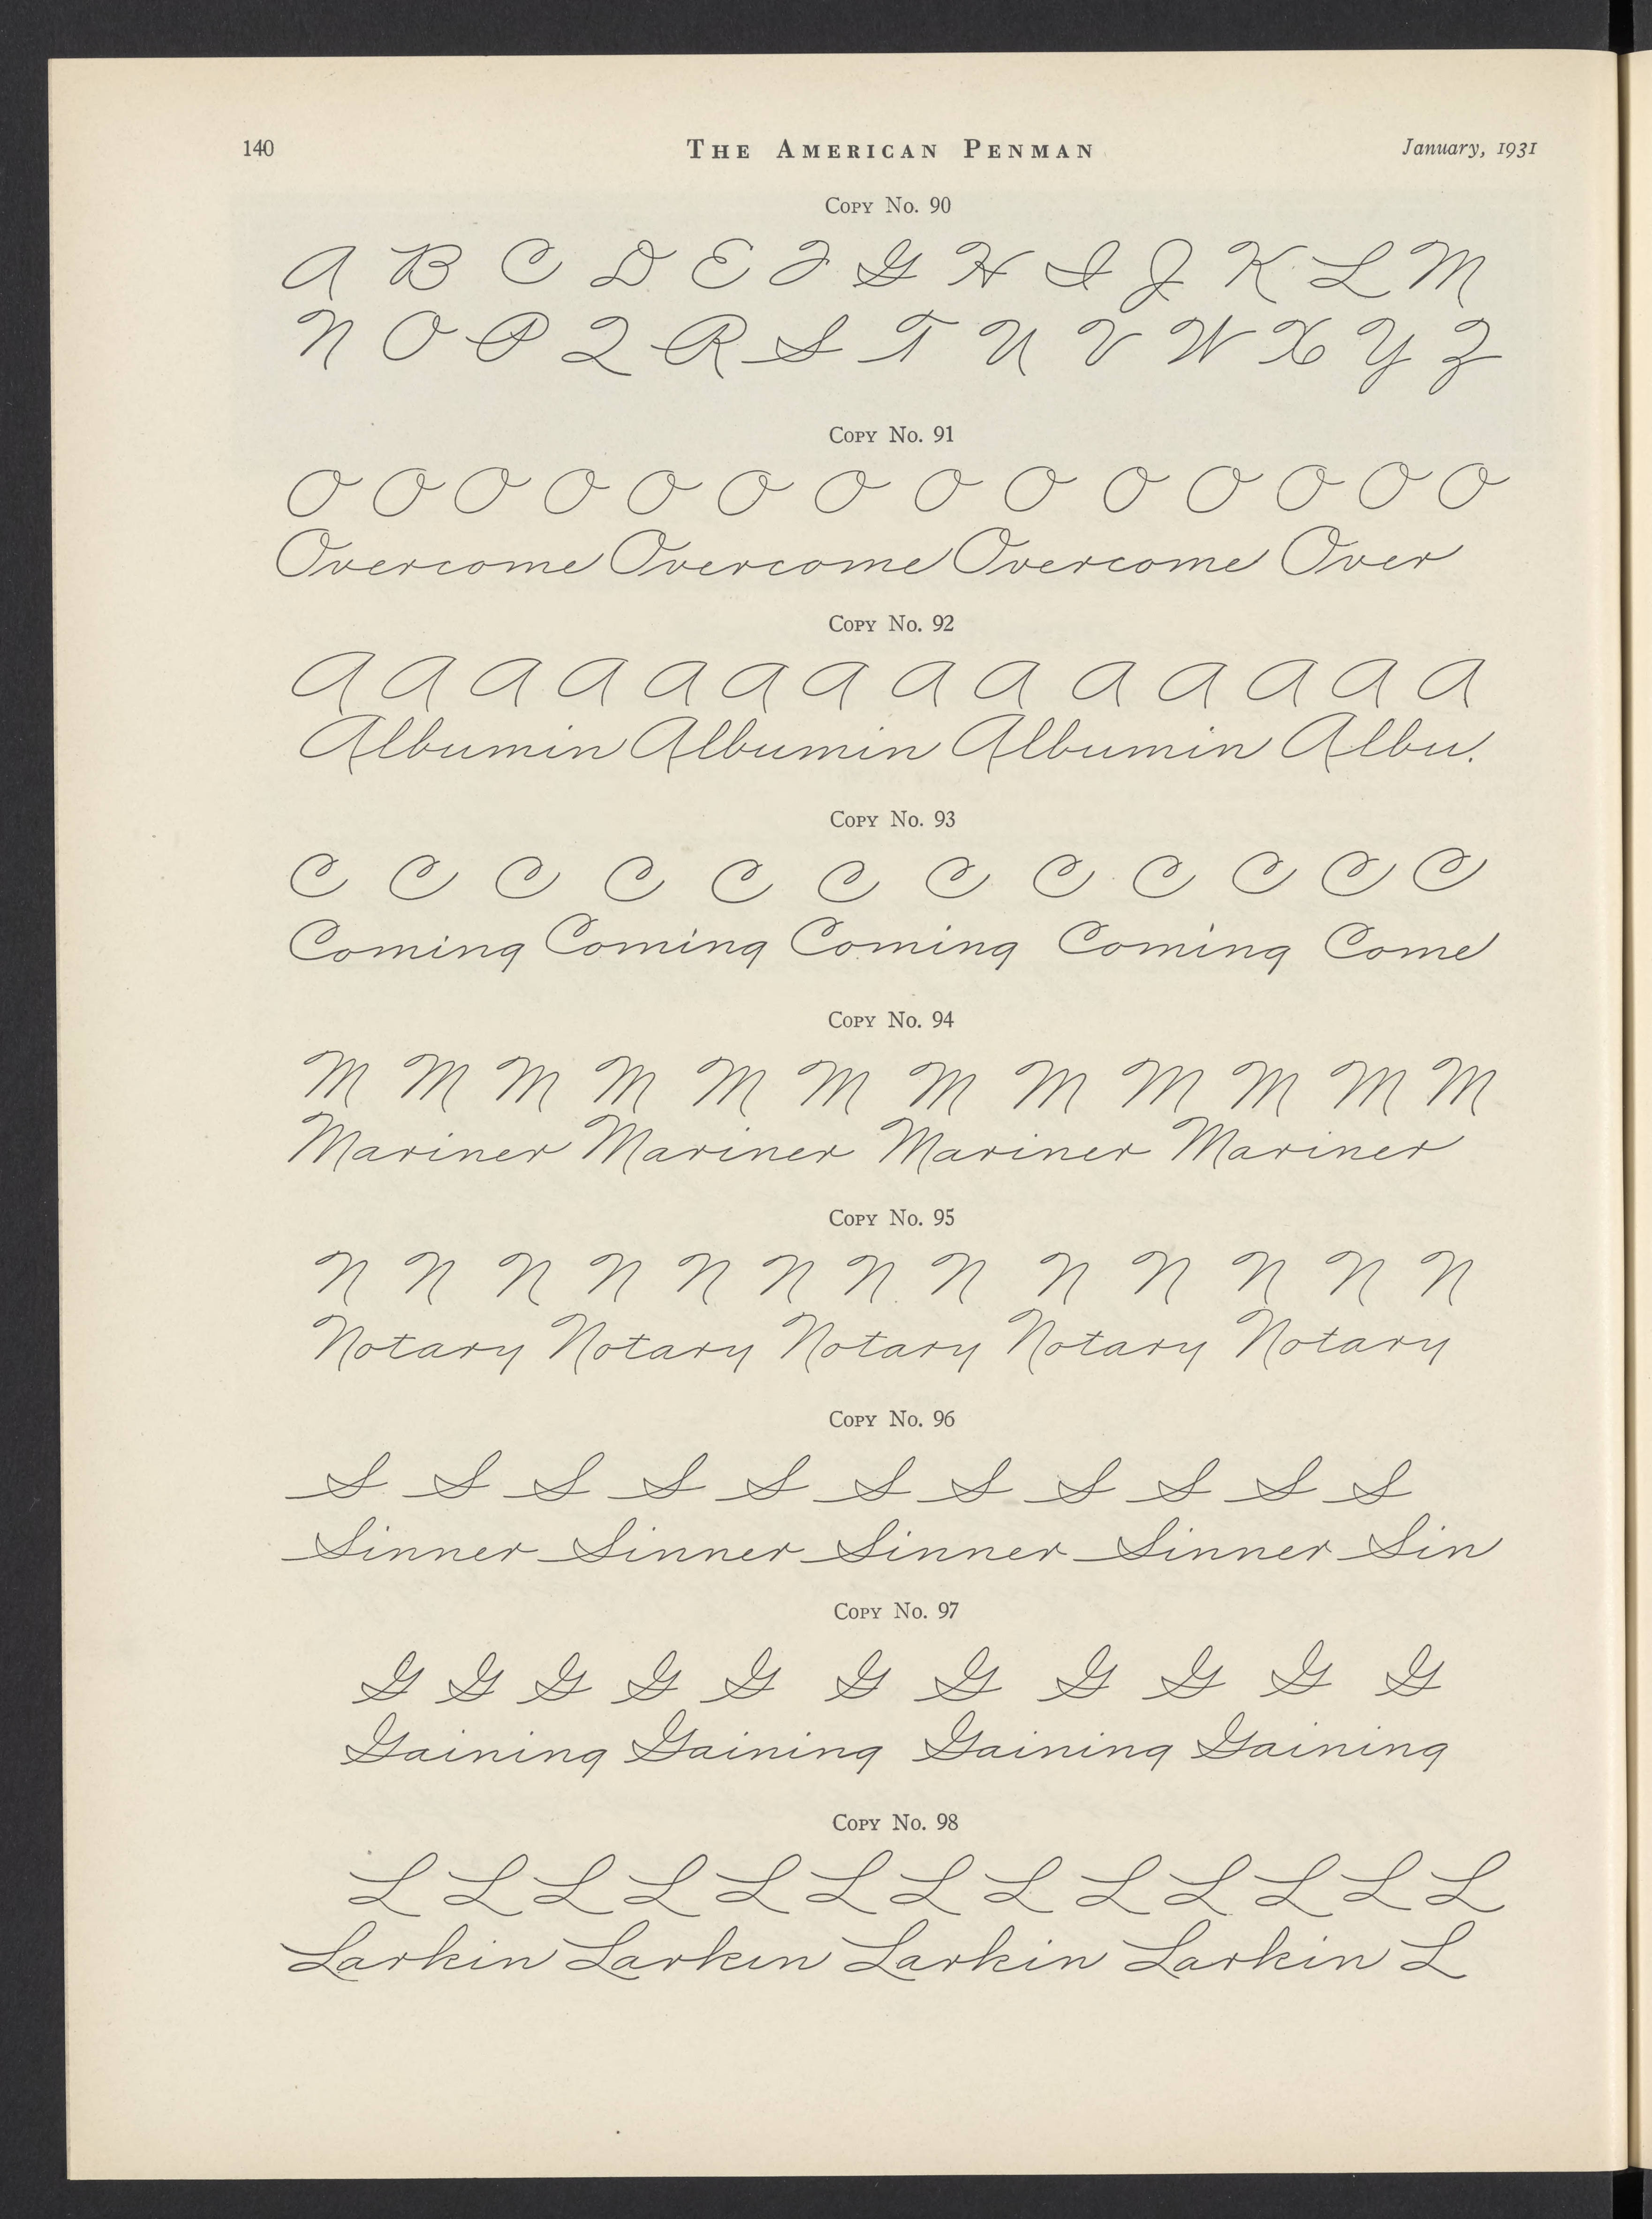 140 THE AMERICAN PENMAN January, 1931
COPY No. 90
A B C D E F G H I J K L M
N O P Q R S T U V W X Y Z
COPY No. 91
O O O O O O O O O O O O O O
Overcome Overcome Overcome Over
COPY No. 92
A A A A A A A A A A A A A A
Albumin Albumin Albumin Albu.
COPY No. 93
C C C C C C C C C C C C
Coming Coming Coming Coming Come
COPY No. 94
M M M M M M M M M M M M
Mariner Mariner Mariner Mariner
COPY No. 95
N N N N N N N N N N N N N
Notary Notary Notary Notary Notary
COPY No. 96
S S S S S S S S S S S
Sinner Sinner Sinner Sinner Sin
COPY No. 97
G G G G G G G G G G G
Gaining Gaining Gaining Gaining
COPY No. 98
L L L L L L L L L L L L L
Larkin Larkin Larkin Larkin L